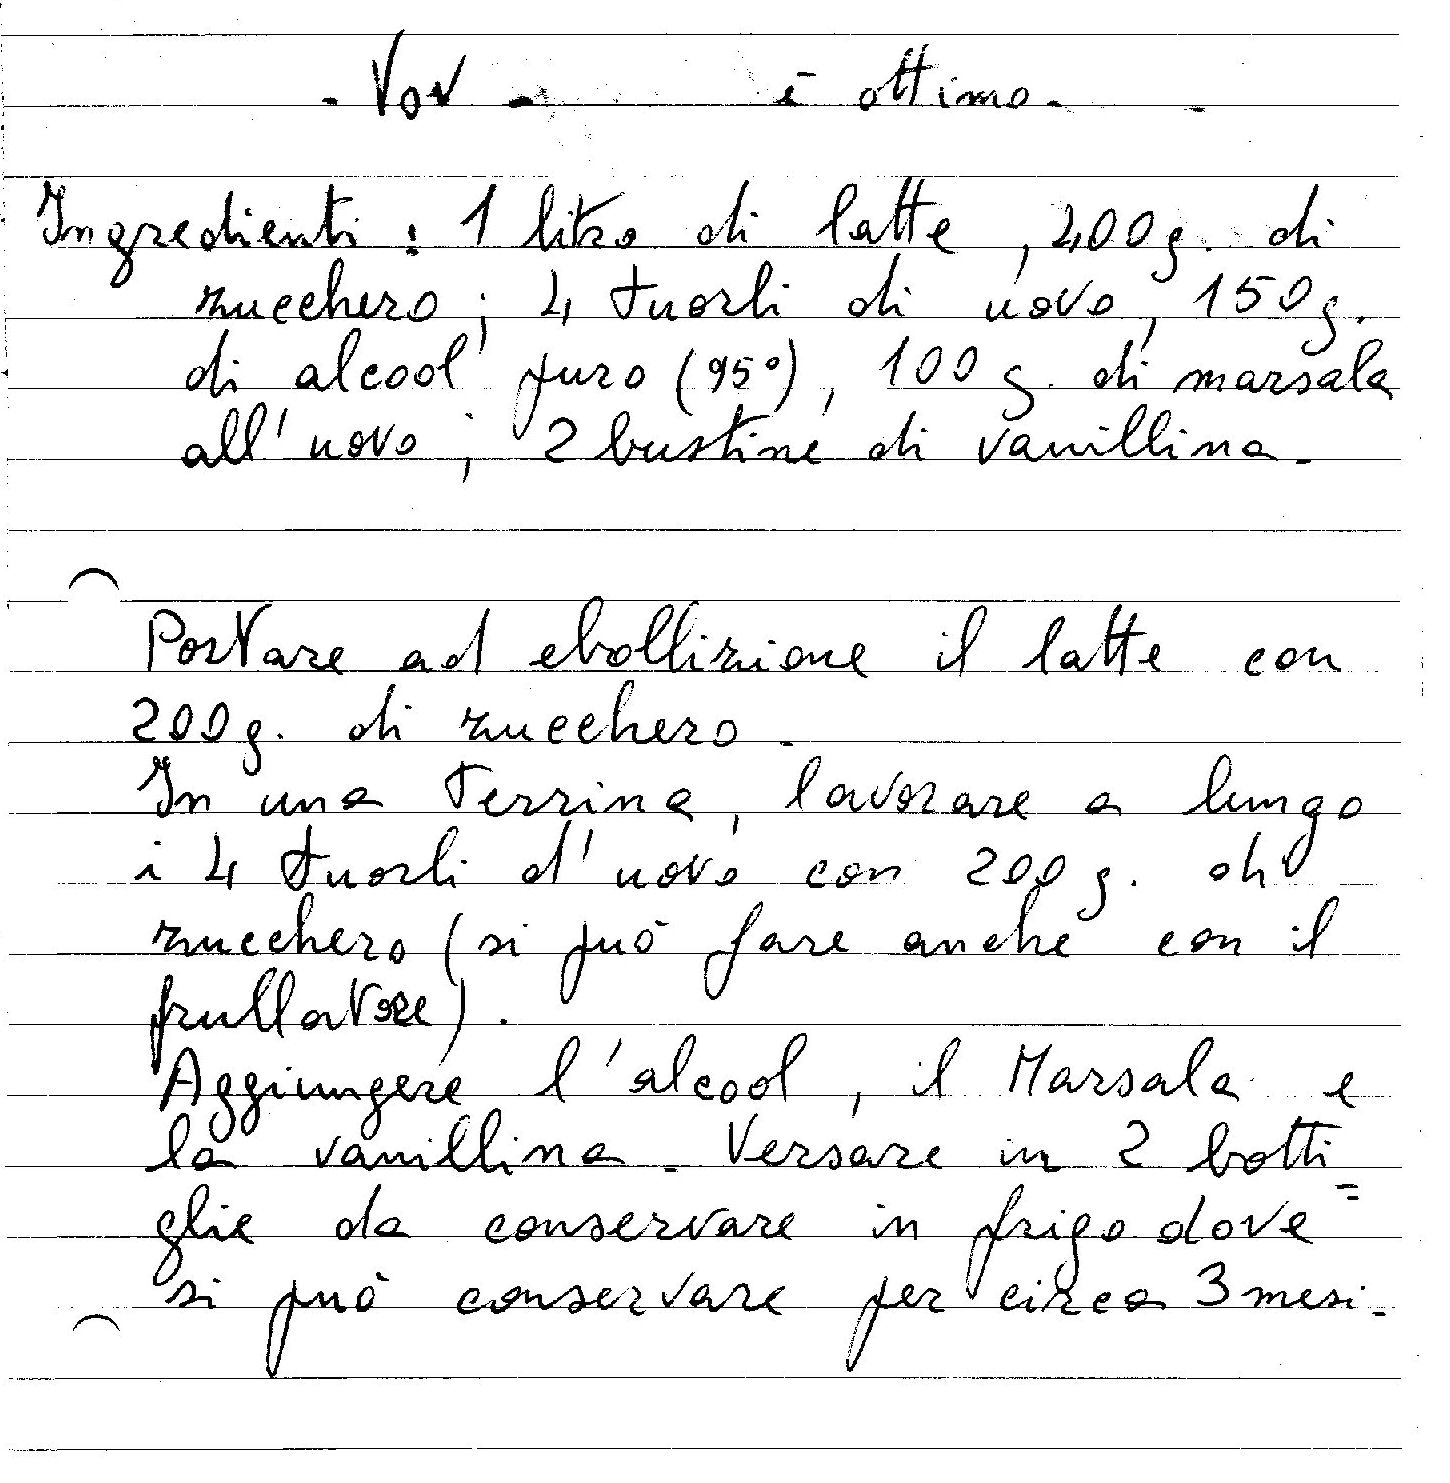 - Vov - è ottimo -
Ingredienti : 1 litro di latte , 400 g. di
zucchero ; 4 tuorli di uovo , 150 g.
di alcool puro ( 95° ) , 100 g. di marsala
all' uovo ; 2 bustine di vanillina -
Portare ad ebollizione il latte con
200 g. di zucchero -
In una terrina , lavorare a lungo
i 4 tuorli d' uovo con 200 g. di
zucchero ( si può fare anche con il
frullatore ) .
Aggiungere l' alcool , il Marsala e
la vanillina - Versare in 2 botti=
glie da conservare in frigo dove
si può conservare per circa 3 mesi -